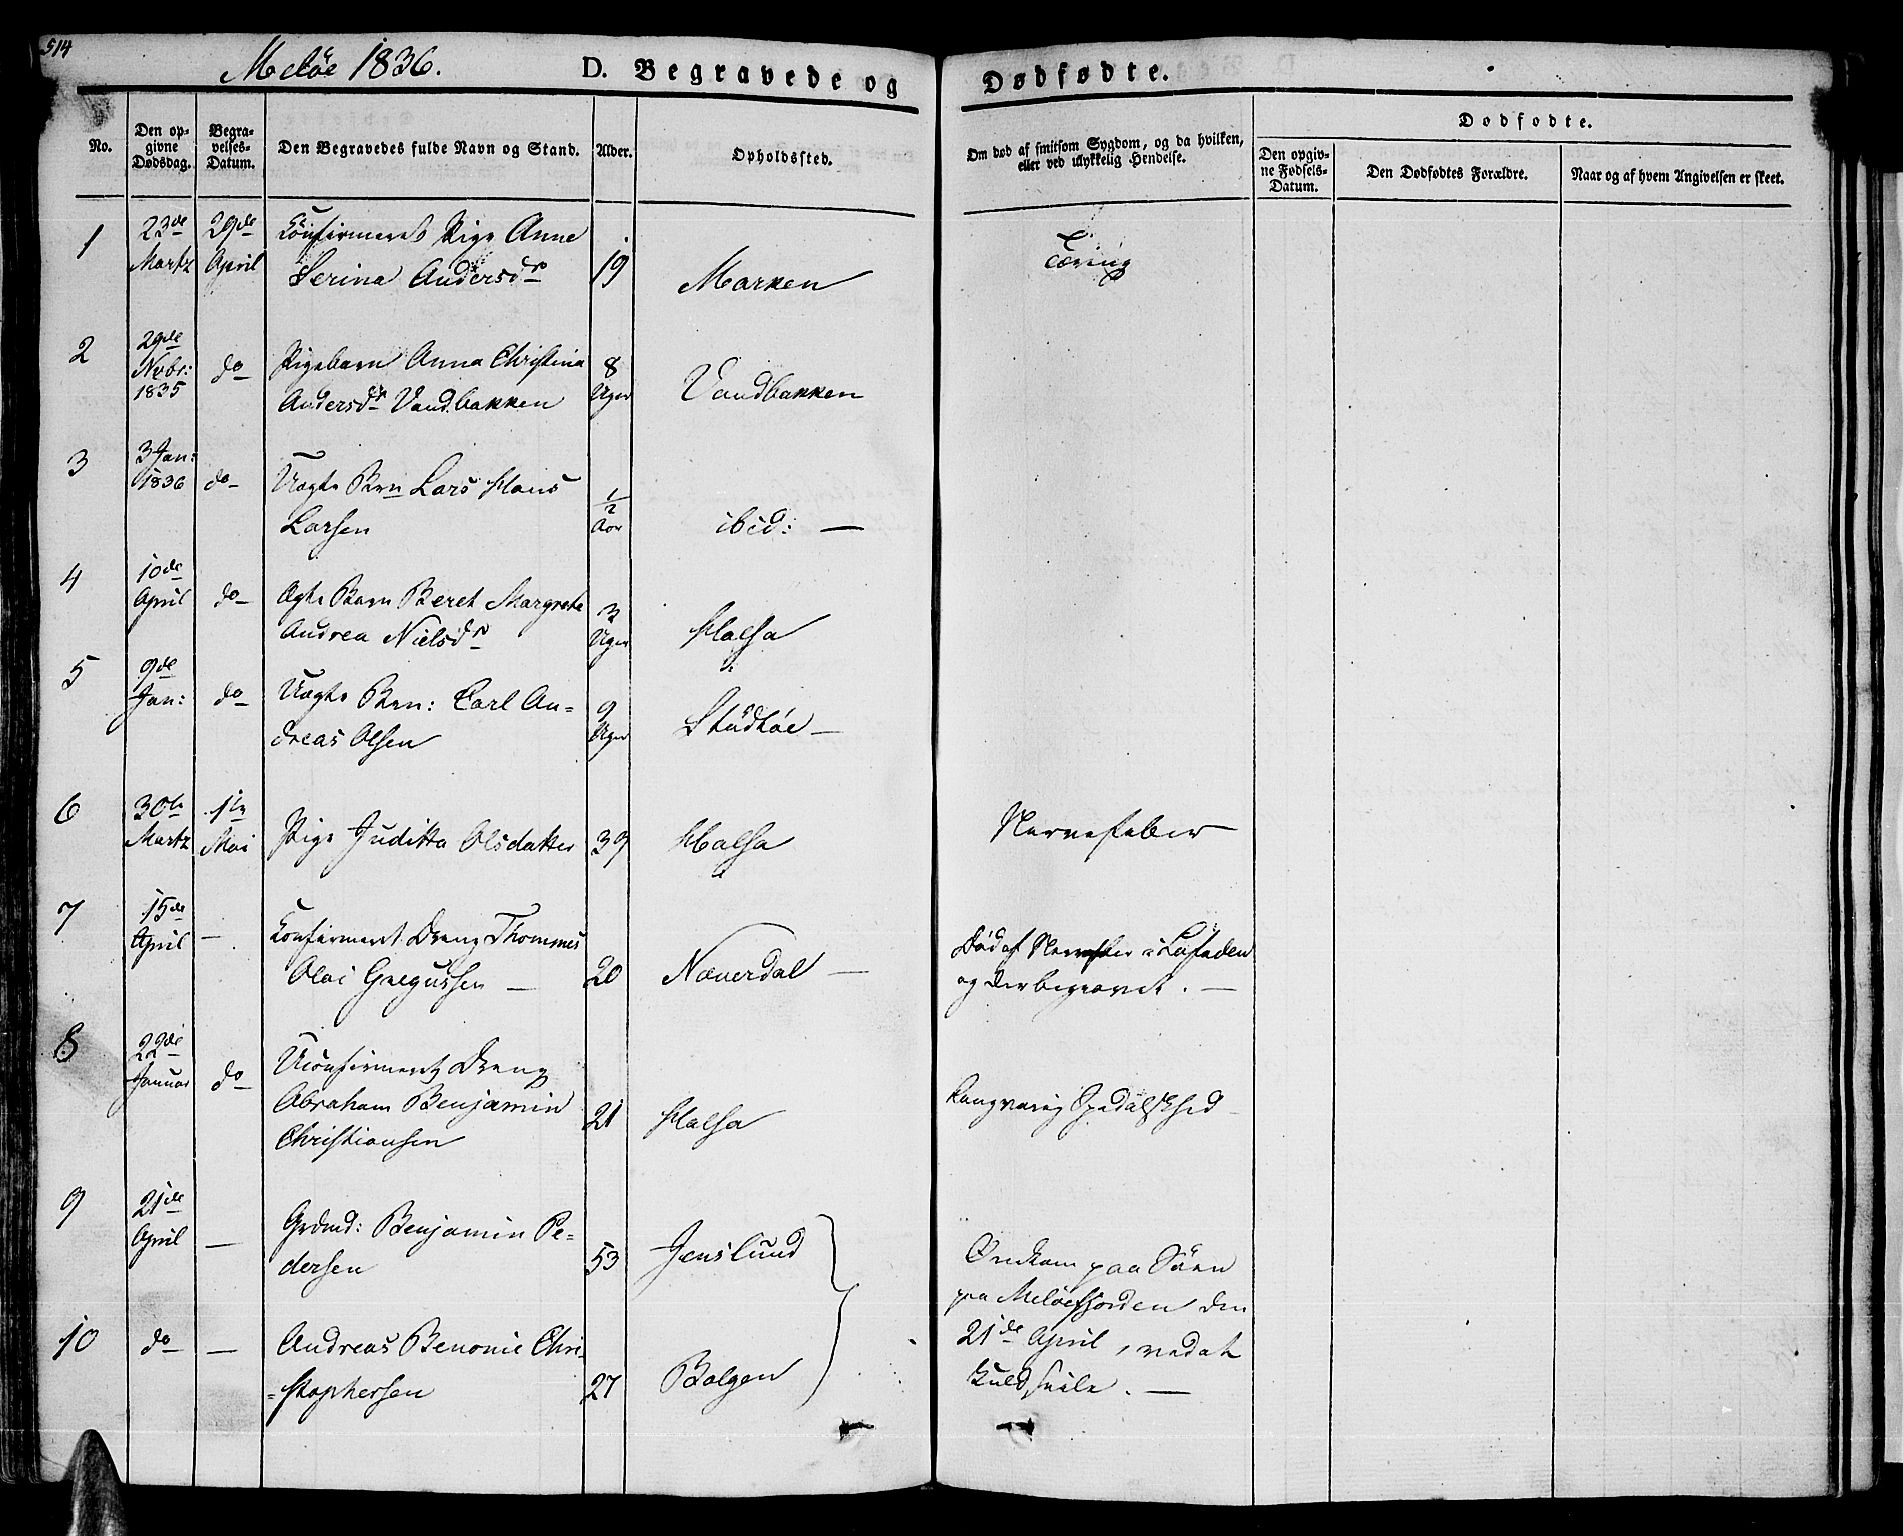 514
Meløe 1836.
D. Begravede og Dødfødte.
No.
Den opgivne Dødsdag.
Begravelses-Datum.
Den Begravedes fulde Navn og Stand.
Alder.
Opholdssted.
Om død af smitsom Sygdom, og da hvilken, eller ved ulykkelig Hendelse.
Dødfødte.
Den opgivne Fødsels-Datum.
Den Dødfødtes Forældre.
Naar og af hvem Angivelsen er skeet.
1
23de Martz
29de April
Confirmeret Pige Anne
Serina Andersdr
19
Marken
Tæring
2
29de Novbr: 1835
do
Pigebarn Anna Christina
Andersdr Vandbakken
8 Uger
Vandbakken
3
3 Jan: 1836
do
Uægte Brn Lars Hans
Larsen
1/2 Aar
ibid: —
4
10de April
do
Ægte Barn Beret Margrete
Andrea Nielsdr
3 Uger
Halsa
5
9de Jan:
do
Uægte Brn: Carl An=
dreas Olsen
9 Uger
Stødtøe —
6
30te Martz
1te Mai
Pige Juditta Olsdatter
39
Halsa
Nervefeber
7
15de April
—
Confirmeret Dreng Thommes
Olai Gregussen —
20
Næverdal —
Død af Nervefeber i Lofoden
og der begravet. —
8
22de Januar
do
Uconfirmeret Dreng
Abraham Benjamin
Christiansen
21
Halsa
Langvarig Spedalskhed
9
21de April
—
Grdmd: Benjamin Pe=
dersen
53
Jenslund
Omkom paa Søen
paa Meløefjorden den
21de April, ved et
Kuldseile. —
10
do
—
Andreas Benonie Chri=
=stophersen
27
Bolgen